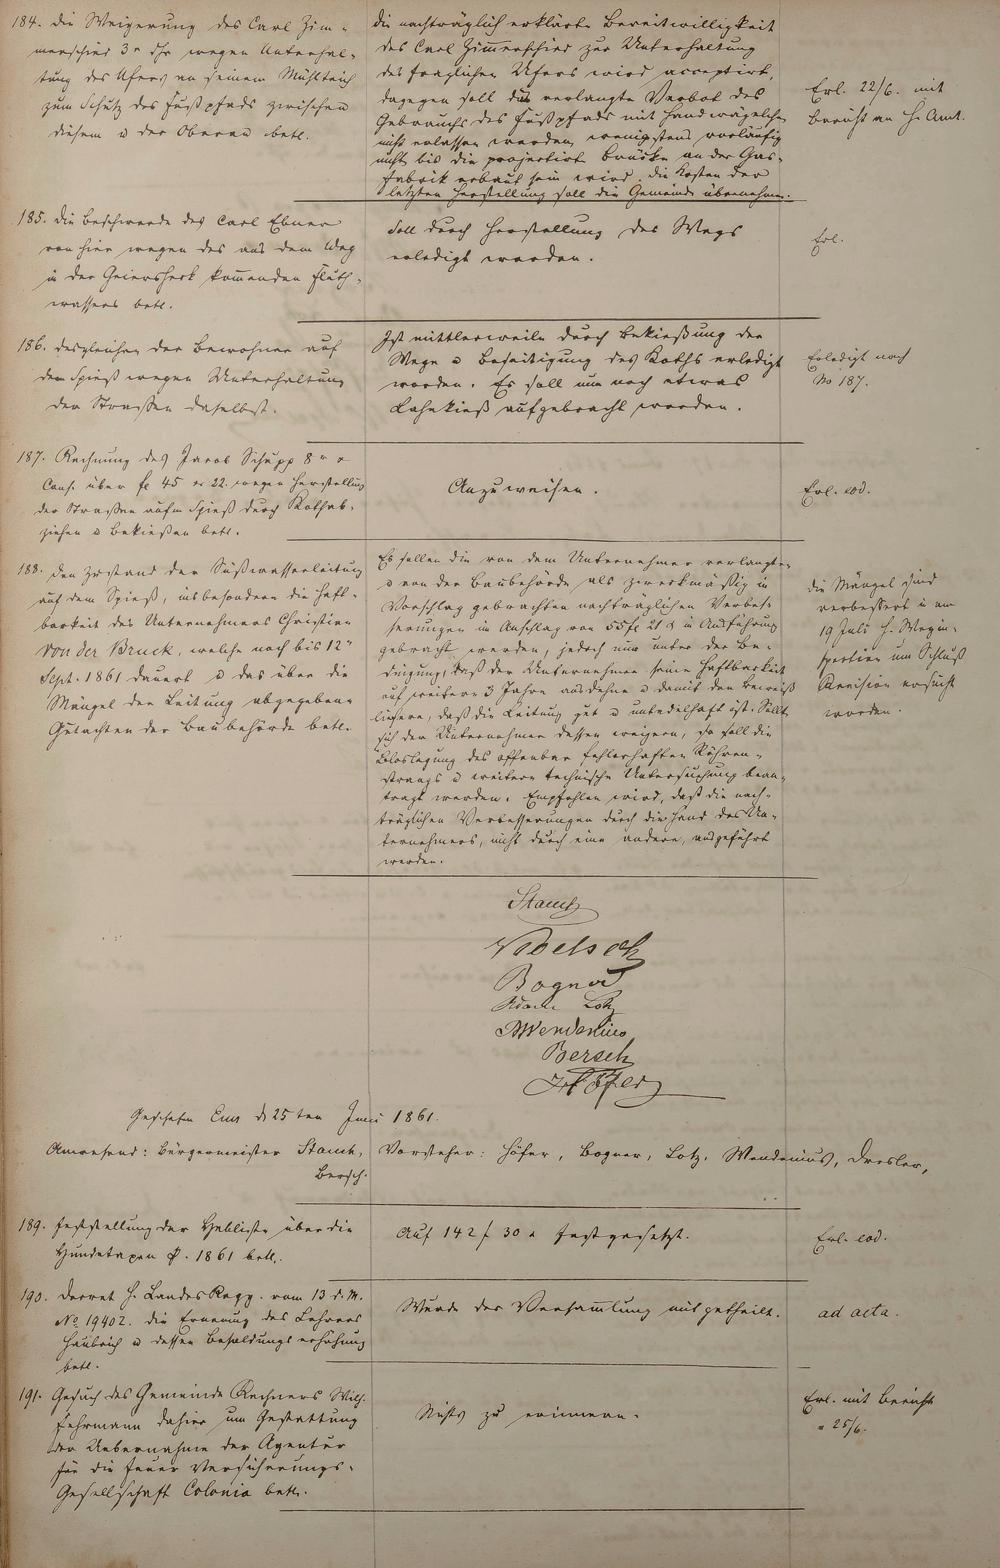 184. Die Weigerung des Carl Zim-
merschied 3r dhr wegen Unterhal-
tung des Ufers an seinem Mühlteich
zum Schutz des Fußpfads zwischen
diesem u der Oberau betr.
Die nachträglich erklärte Bereitwilligkeit
des Carl Zimmerschied zur Unterhaltung
des fraglichen Ufers wird acceptirt,
dagegen soll das verlangte Verbot des
Gebrauchs des Fußpfads mit Handwägelchen
nicht erlassen werden, wenigstens vorläufig
nicht bis die projectirte Brücke an der Gas-
fabrik erbaut sein wird. Die Kosten der
letzten Herstellung soll die Gemeinde übernehmen.
Erl. 22/6. mit
Bericht an H. Amt.
185. Die Beschwerde des Carl Ebner
von hier wegen des aus dem Weg
in der Geiersheck kommenden Fluth-
wassers betr.
Soll durch Herstellung des Wegs
erledigt werden.
Erl.
186. Desgleichen der Bewohner auf
dem Spieß wegen Unterhaltung
der Straßen daselbst.
Ist mittlerweile durch Bekießung der
Wege u Beseitigung des Koths erledigt
worden. Es soll nun noch etwas
Lahnkieß aufgebracht werden.
Erledigt nach
No 187.
187. Rechnung des Jacob Schupp 8r
Cons. über fl 45 xr 22. wegen Herstellung
der Straßen aufm Spieß durch Kothab-
ziehen u Bekießen betr.
Anzuweisen.
Erl. eod.
188. Den Zustand der Süßwasserleitung
auf dem Spieß, insbesondere die Haft-
barkeit des Unternehmers Christian
von der Bruck, welche noch bis 12n
Sept. 1861 dauert u das über die
Mängel der Leitung abgegebene
Gutachten der Baubehörde betr.
Es sollen die von dem Unternehmer verlangten
u von der Baubehörde als zweckmäßig in
Vorschlag gebrachten nachträglichen Verbes-
serungen im Anschlag von 55 fl 21 x in Ausführung
gebracht werden, jedoch nur unter der Be-
dingung, daß der Unternehmer seine Haftbarkeit
auf weitere 3 Jahre ausdehne u damit den Beweiß
liefere, daß die Leitung gut u untadelhaft ist. Sollte
sich der Unternehmer dessen weigern, so soll die
Bloslegung des offenbar fehlerhaften Röhren-
strangs u weitere technische Untersuchung bean-
tragt werden. Empfohlen wird, daß die nach-
träglichen Verbesserungen durch die Hand des Un-
ternehmers, nicht durch eine andere, ausgeführt
werden.
Die Mängel sind
verbessert u am
19 Juli H. Wegin-
spection um Schluß
Revision ersucht
worden.
Stamm
Bogner
Lotz
Wendenius
Bersch
Höfer
Geschehen Ems d 25ten Juni 1861.
Anwesend: Bürgermeister Stamm, Vorsteher: Höfer, Bogner, Lotz, Wendenius, Dresler,
Bersch.
189. Feststellung der Hebliste über die
Hundetaxen p. 1861 betr.
Auf 142 f 30 x festgesetzt.
Erl. eod.
190. Decret H. LandesRegg. vom 13 d. M.
No 19402. die Ernenung des Lehrers
Haubrich u dessen Besoldungserhöhung
betr.
Wurde der Versammlung mitgetheilt.
ad acta.
191. Gesuch des Gemeinde Rechners Wilh.
Fehrmann dahier um Gestattung
der Uebernahme der Agentur
für die Feuer Versicherungs-
Gesellschaft Colonia betr.
Nichts zu erinnern.
Erl. mit Bericht
v 25/6.